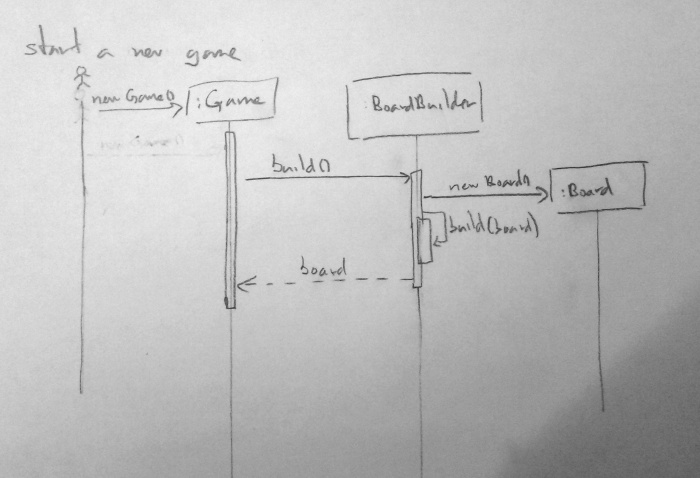 start a new game
new Game()
:Game
:BoardBuilder
build()
new Board()
:Board
build(board)
board